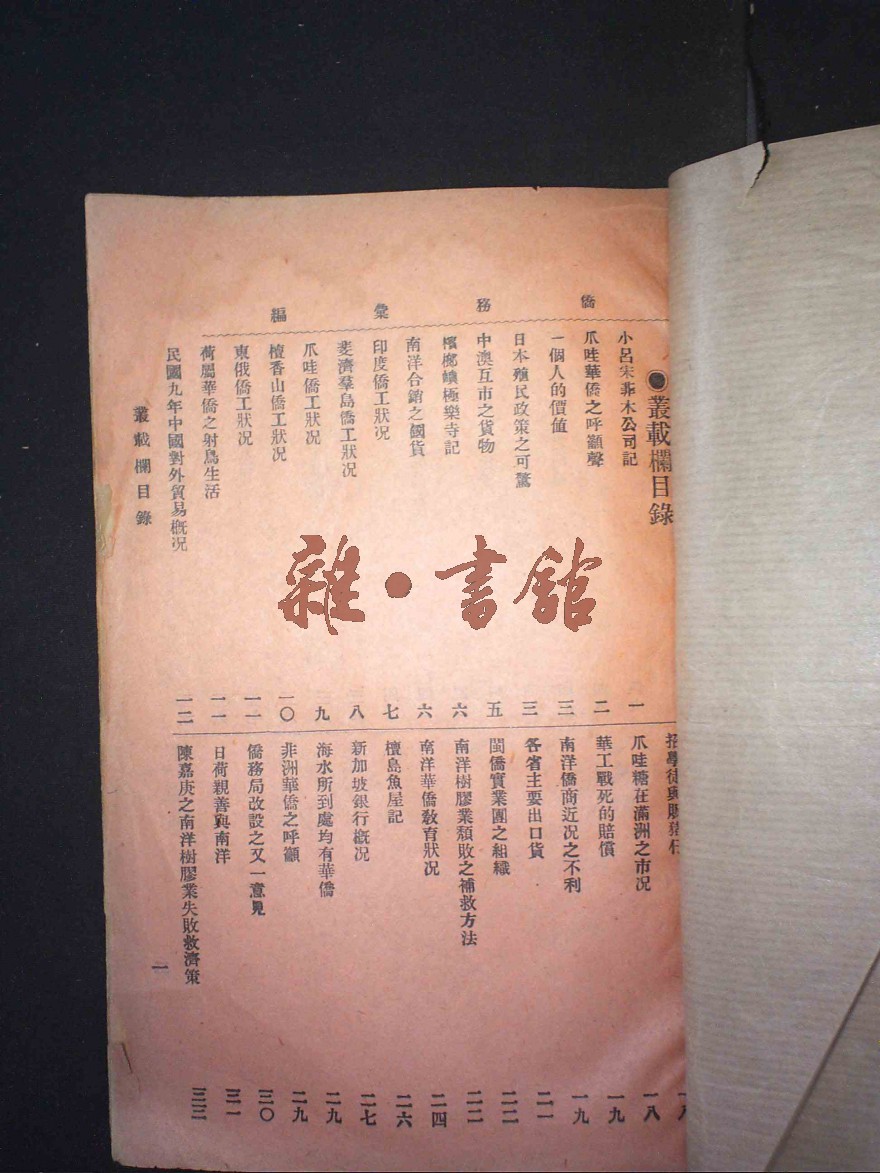 僑務彙編
●叢載欄目錄
小呂宋非木公司記 一
爪哇華僑之呼籲聲 二
一個人的價值 三
日本殖民政策之可驚 三
中澳互市之貨物 五
檳榔嶼極樂寺記 六
南洋合銷之國貨 六
印度僑工狀况 七
斐濟羣島僑工狀况 八
爪哇僑工狀况 九
檀香山僑工狀况 一〇
東俄僑工狀况 一一
荷屬華僑之射鳥生活 一一
民國九年中國對外貿易概况 一二
招學徒與豬仔 一八
爪哇糖在滿洲之市况 一八
華工戰死的賠償 一九
南洋僑商近况之不利 一九
各省主要出口貨 二一
閩僑實業團之組織 二二
南洋樹膠業頹敗之補救方法 二二
南洋華僑敎育狀况 二四
檀島魚屋記 二六
新加坡銀行概况 二七
海水所到處均有華僑 二九
非洲華僑之呼籲 二九
僑務局改設之又一意見 三〇
日荷親善與南洋 三一
陳嘉庚之南洋樹膠業失敗救濟策 三三
叢載欄目錄 一
雜●書館